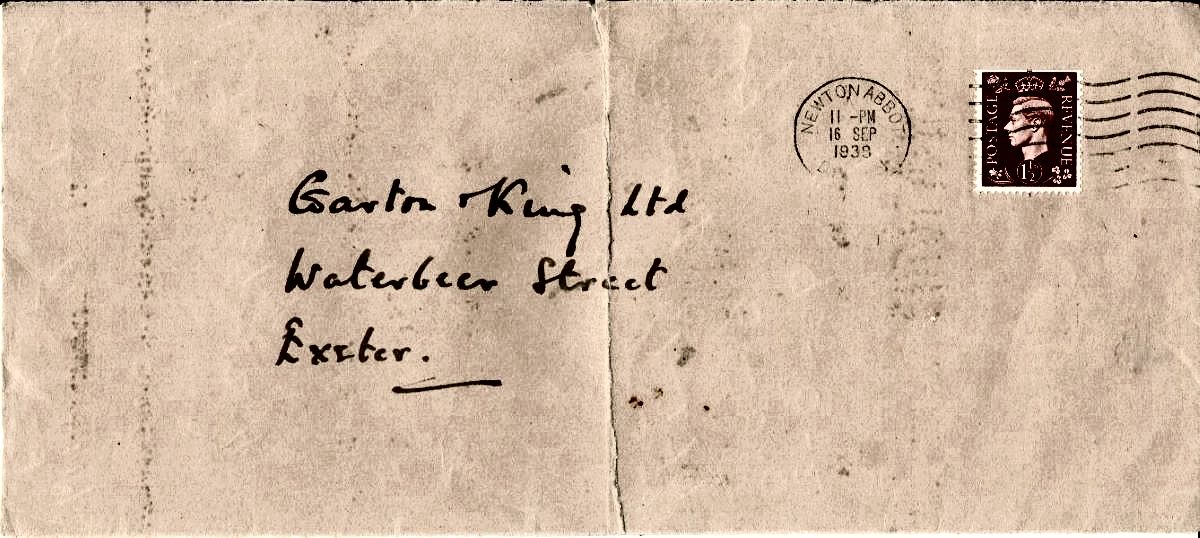 NEWTON ABBOT
11 - PM
16 SEP
1938
POSTAGE REVENUE
1½
Garton & King Ltd
Waterbeer Street
Exeter.